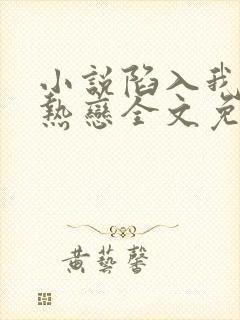 小説陷入我
熱戀全文免
黄藝馨